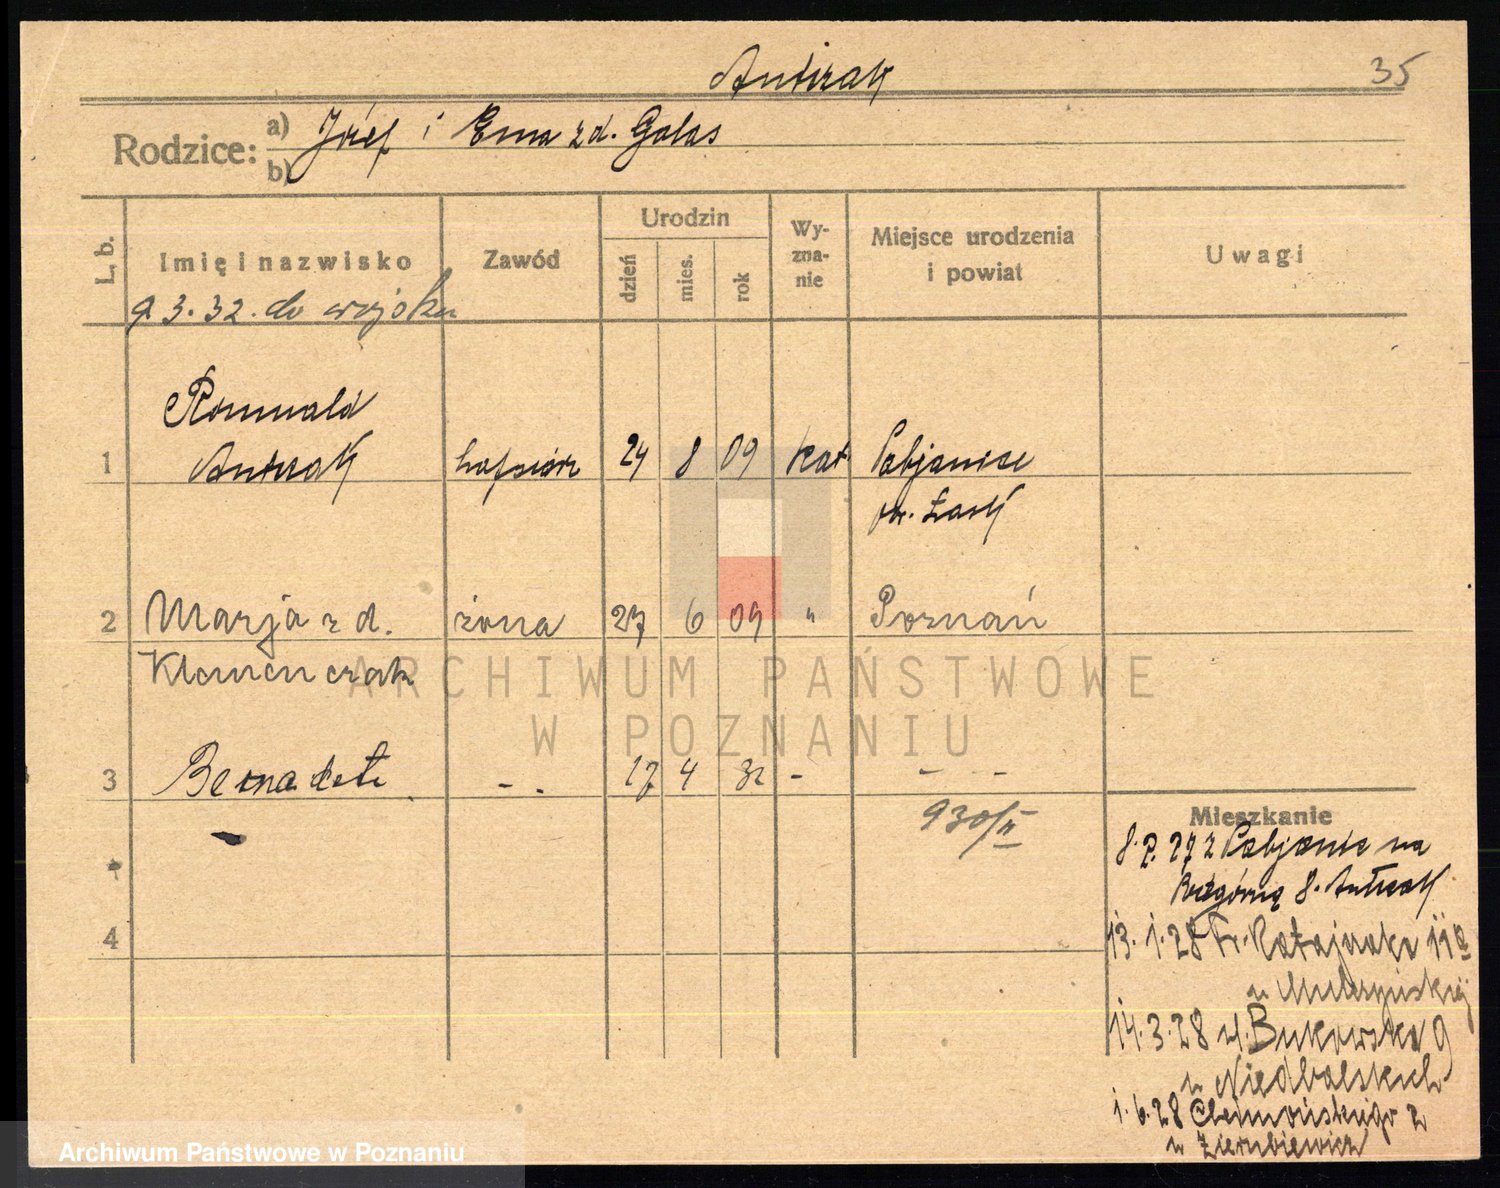 Antczak
35
Rodzice: a) Józef i Ema z d. Golas
b)
L. b.
Imię i nazwisko
Zawód
Urodzin
dzień
mies.
rok
Wy-
zna-
nie
Miejsce urodzenia
i powiat
Uwagi
9.3.32. do wojska
Romuald
1 Antczak hafciarz 24 8 09 kat Pabjanice
pw. Łask
2 Marja z d. żona 27 6 09 " Poznań
Klemenczak
3 Bernadeta - . 17 4 32 - - -
930/II
4
Mieszkanie
8.2.27 z Pabjanic na
8. Antczak
13.1.28 Fr. Ratajczaka 11a
u
14.3.28 ul. Bukowska 9
u Niedbalskich
1.6.28 Chełmońskiego 2
u
ARCHIWUM PAŃSTWOWE
W POZNANIU
Archiwum Państwowe w Poznaniu